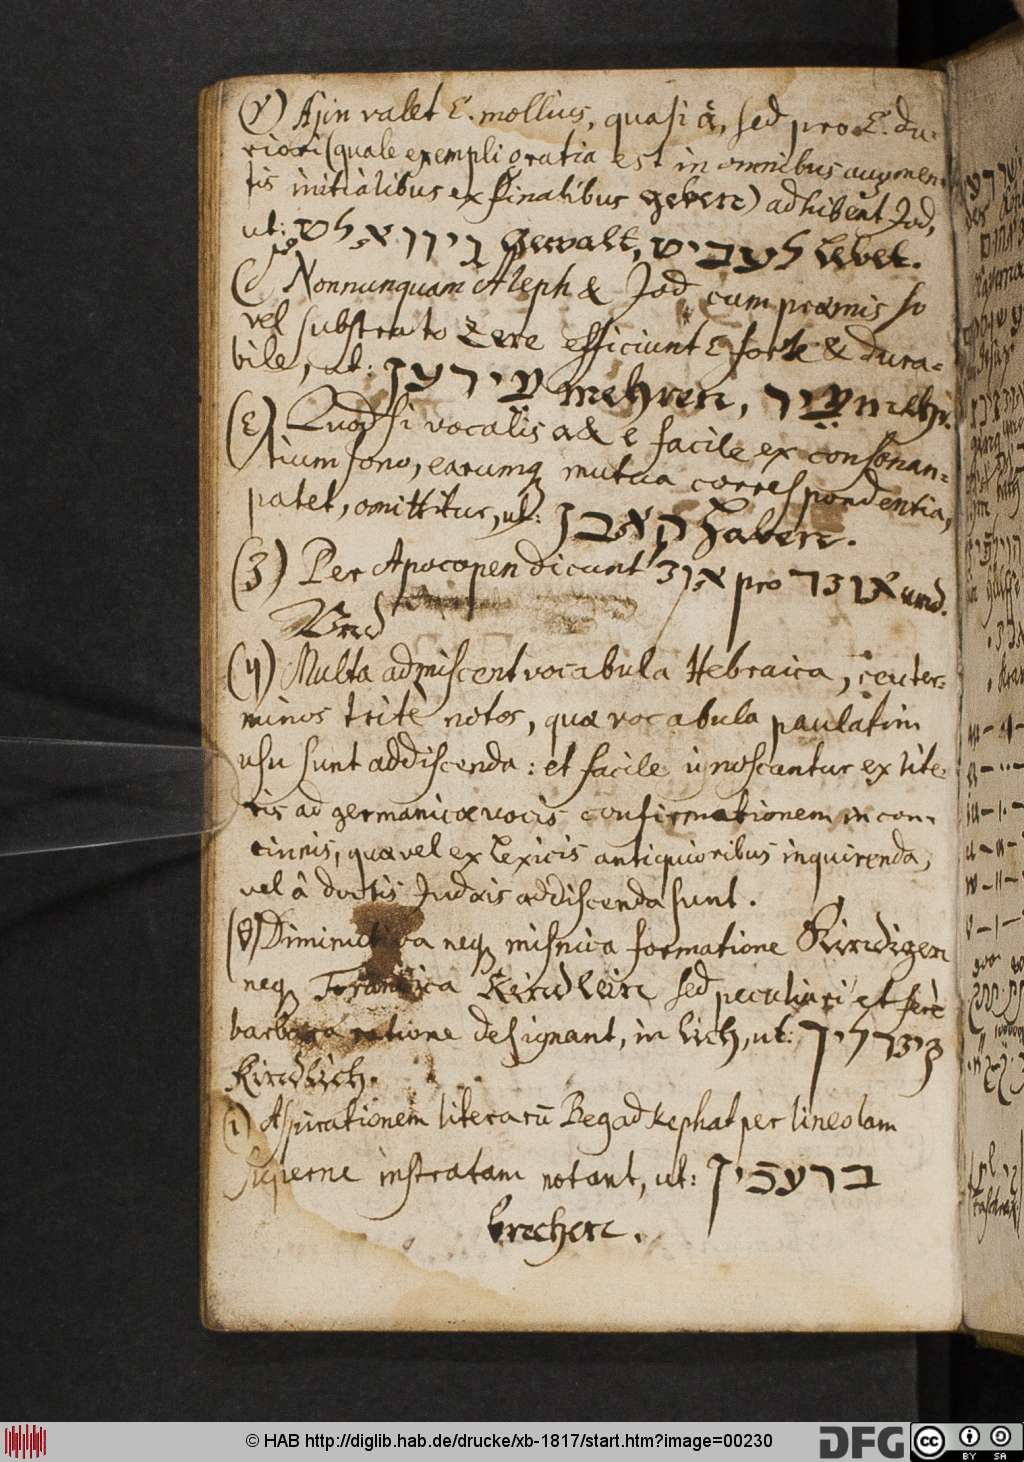 (γ) Ajin valet E. mollius, quasi å, sed pro E. du-
riori (quale exempli gratia est in omnibus augmen-
tis initialibus ex finalibus geben) adhibent Jod,
ut: Gewalt, לעביט lebet.
(δ) Nonnunquam Aleph & Jod cum præmisso
vel substrato Zere efficiunt E forte & dura-
bile, ut: mehren, mehr.
(ε) Quodsi vocalis a & e facile ex consonan-
tium sono, earumq mutua correspondentia,
patet, omittitur, ut: haben.
(ʒ) Per Apocopen dicunt pro und.
Und
(η) Multa admiscent vocabula Hebraica, ceu ter-
minos tritè notos, quæ vocabula paulatim
usu sunt addiscenda: et facile ignoscantur ex lite-
ris ad germanicæ vocis confirmationem incon-
cinnis, quæ vel ex Lexicis antiquioribus inquirenda,
vel à doctis Judæis addiscenda sunt.
(θ) Diminutiva neq misnica formatione Kindigen
neq Kindlein sed peculiari et ferè
barbara ratione designant, in lich, ut: קינדליך
Kindlich.
ι) Aspirationem literarū Begadkephat per lineolam
superne instratam notant, ut: ברעכין
brechen.
© HAB http://diglib.hab.de/drucke/xb-1817/start.htm?image=00230
DFG
CC BY SA